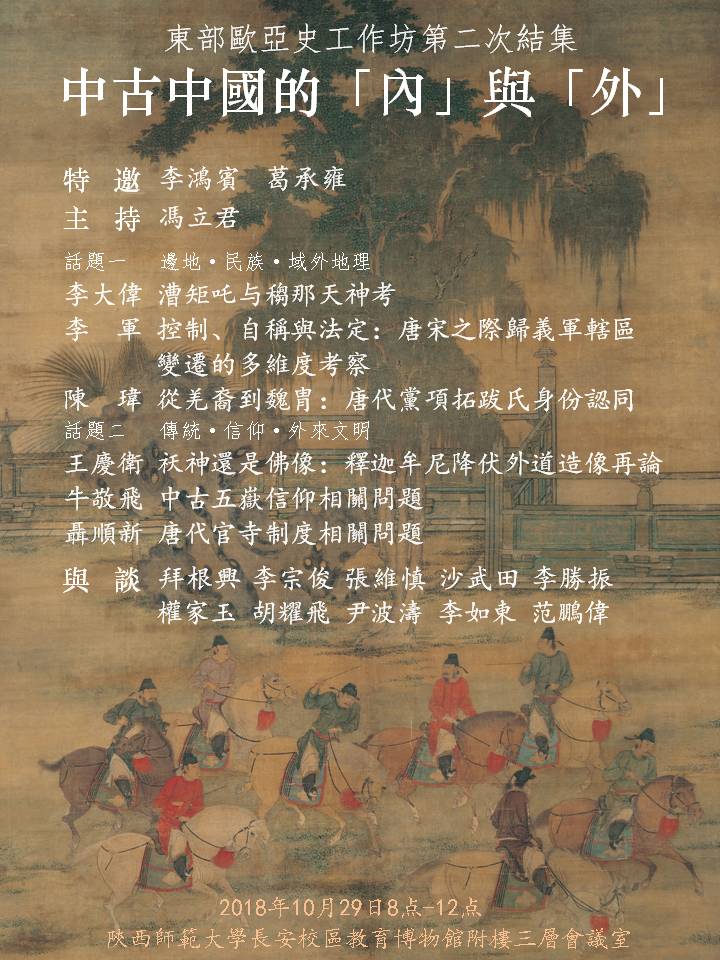 東部歐亞史工作坊第二次結集
中古中國的「內」與「外」
特 邀 李鴻賓 葛承雍
主 持 馮立君
話題一 邊地·民族·域外地理
李大偉 漕矩吒与穪那天神考
李 軍 控制、自稱與法定：唐宋之際歸義軍轄區
變遷的多維度考察
陳 瑋 從羌裔到魏冑：唐代黨項拓跋氏身份認同
話題二 傳統·信仰·外來文明
王慶衛 祆神還是佛像：釋迦牟尼降伏外道造像再論
牛敬飛 中古五嶽信仰相關問題
聶順新 唐代官寺制度相關問題
與 談 拜根興 李宗俊 張維慎 沙武田 李勝振
權家玉 胡耀飛 尹波濤 李如東 范鵬偉
2018年10月29日8点-12点
陝西師範大學長安校區教育博物館附樓三層會議室